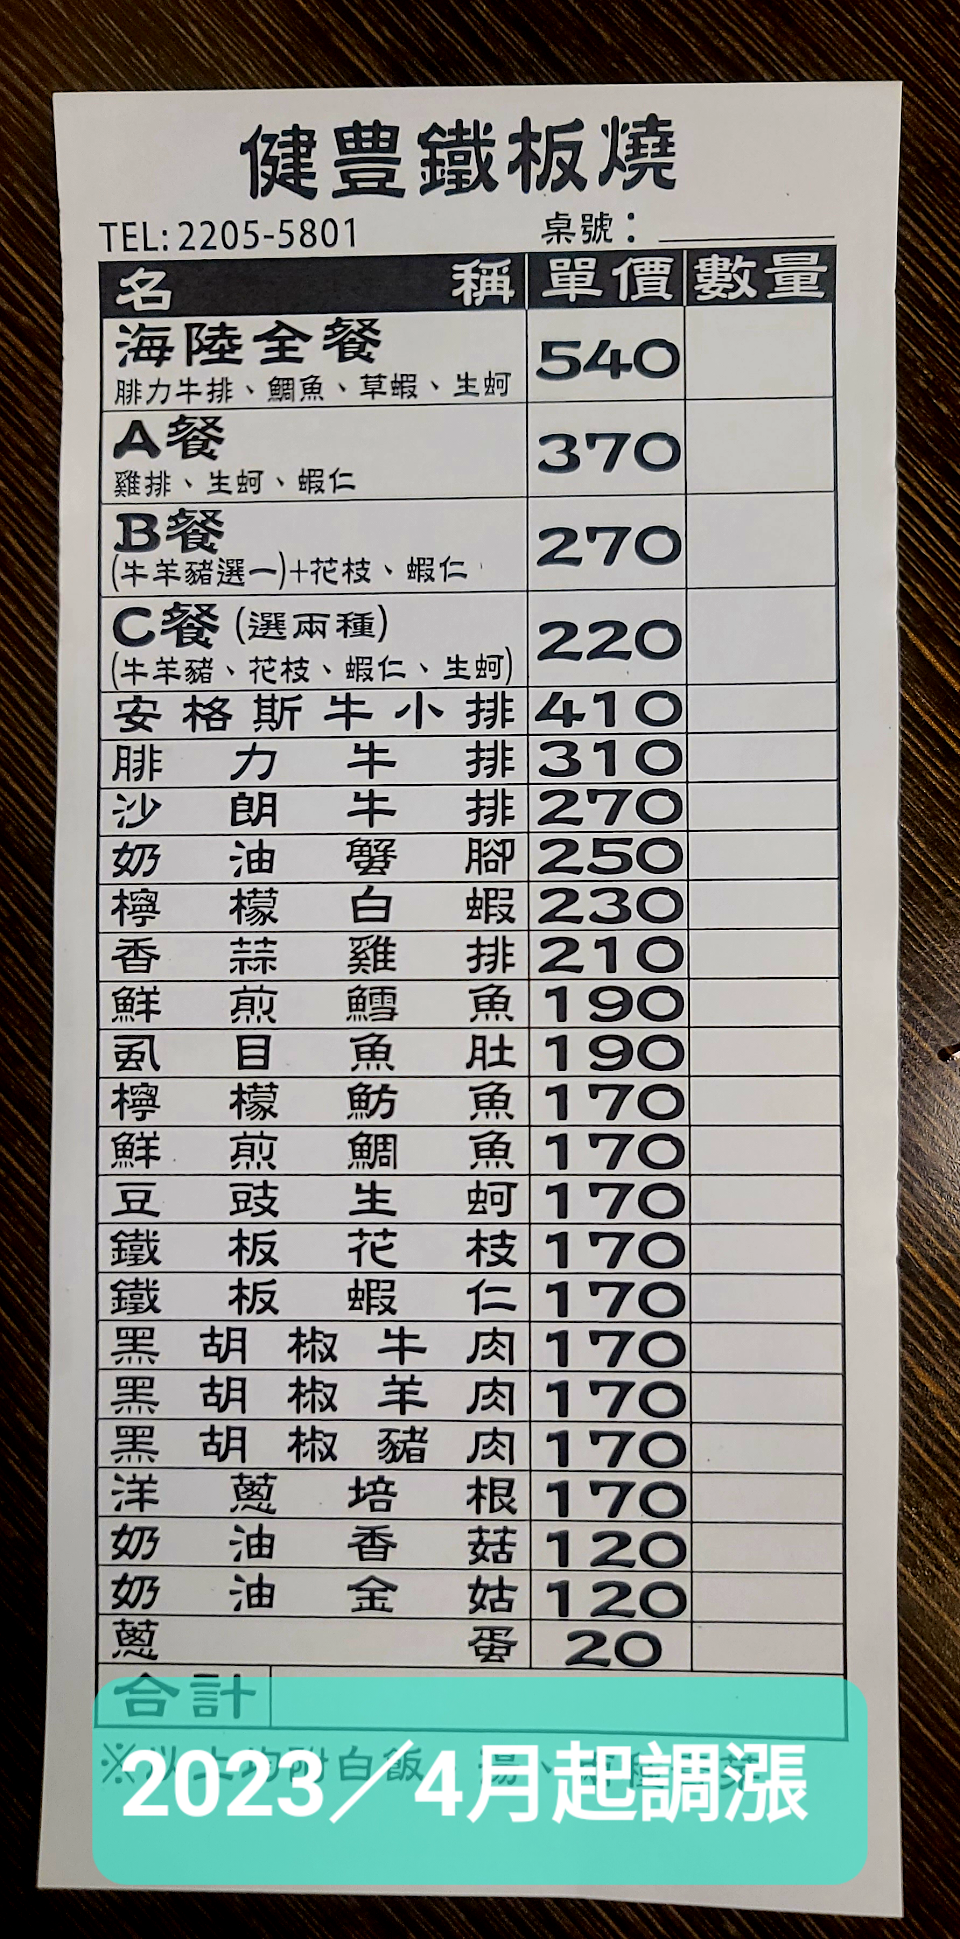 健豊鐵板燒
TEL: 2205-5801 桌號：
名稱 單價 數量
海陸全餐 540
腓力牛排、鯛魚、草蝦、生蚵
A餐 370
雞排、生蚵、蝦仁
B餐 270
(牛羊豬選一)+花枝、蝦仁
C餐 (選兩種) 220
(牛羊豬、花枝、蝦仁、生蚵)
安格斯牛小排 410
腓力牛排 310
沙朗牛排 270
奶油蟹腳 250
檸檬白蝦 230
香蒜雞排 210
鮮煎鱈魚 190
虱目魚肚 190
檸檬魴魚 170
鮮煎鯛魚 170
豆豉生蚵 170
鐵板花枝 170
鐵板蝦仁 170
黑胡椒牛肉 170
黑胡椒羊肉 170
黑胡椒豬肉 170
洋蔥培根 170
奶油香菇 120
奶油金姑 120
蔥蛋 20
合計
※以上均附白飯、湯、
2023／4月起調漲